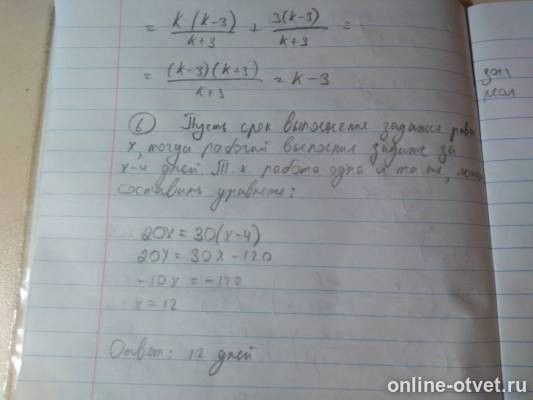 = k(k-3)/k+3 + 3(k-3)/k+3 =
= (k-3)(k+3)/k+3 = k-3
зап
реал
6 Пусть срок выполнения задания равен
x, тогда рабочий выполнил задание за
x-4 дней. Т.к работа одна и та же,
составить уравнение:
20x = 30(x-4)
20x = 30x - 120
-10x = -120
x = 12
Ответ: 12 дней
online-otvet.ru